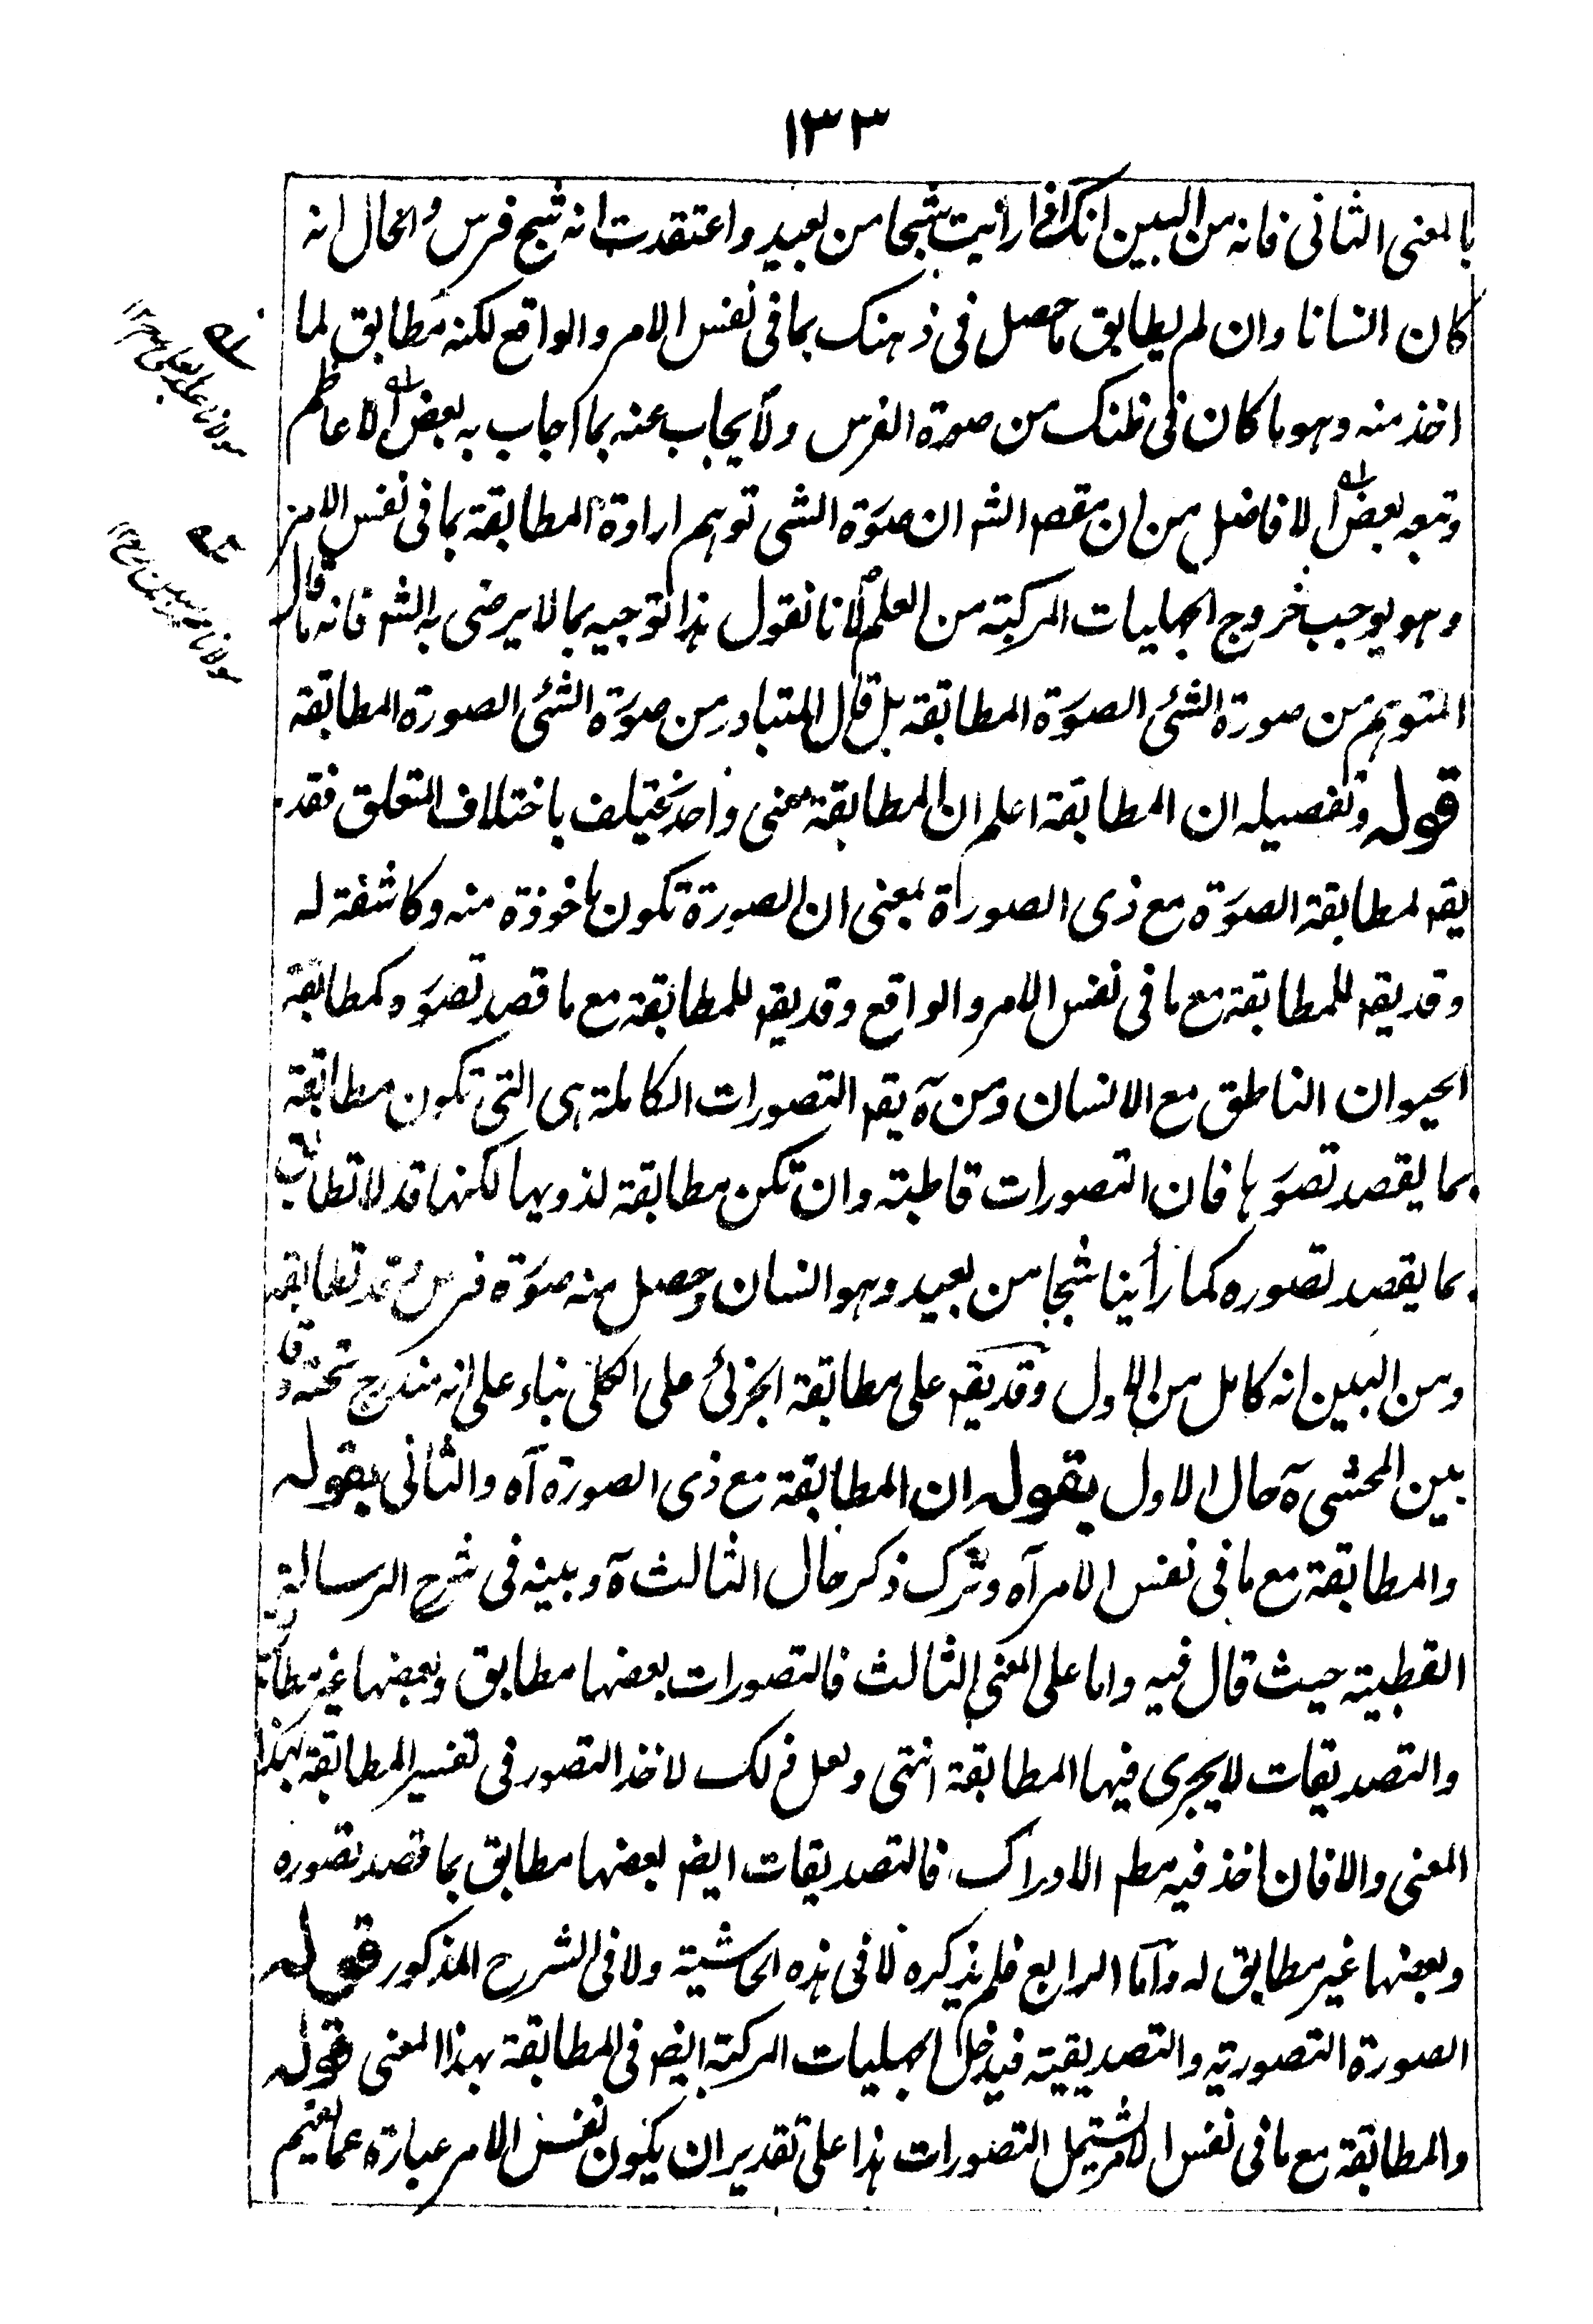 ١٣٣
بالمعنى الثانى فانه من البين انك اذا رأيت شبحا من بعيد واعتقدت انه شبح فرس والحال انه
كان انسانا وان لم يطابق ما حصل فى ذهنك بما فى نفس الامر والواقع لكنه مطابق لما
اخذ منه وهو ما كان فى ظنك من صورة الفرس ولا يجاب عنه بما اجاب به بعض الاعاظم
وتبعه بعض الافاضل من ان مقصد الشم ان صورة الشى توهم ارادة المطابقة بما فى نفس الامر
وهو يوجب خروج الجهليات المركبة من العلم لانا نقول هذا توجيه بما لا يرضى به الشم فانه ما قال
المتوهم من صورة الشئ الصورة المطابقة بل قال المتبادر من صورة الشئ الصورة المطابقة
قوله وتفصيله ان المطابقة اعلم ان المطابقة معنى واحد يختلف باختلاف المتعلق فقد
يقم لمطابقة الصورة مع ذى الصورة بمعنى ان الصورة تكون ماخوذة منه وكاشفة له
وقد يقم للمطابقة مع ما فى نفس الامر والواقع وقد يقم للمطابقة مع ما قصد تصوره كمطابقة
الحيوان الناطق مع الانسان ومن ثه يقم التصورات الكاملة هى التى تكون مطابقة
بما يقصد تصورها فان التصورات قاطبة وان تكن مطابقة لذويها لكنها قد لا تطابق
بما يقصد تصوره كما رأينا شبحا من بعيد وهو انسان وحصل منه صورة فرس وقد تطابقه
ومن البين انه كامل من الاول وقد يقم على مطابقة الجزئى على الكلى بناء على انه مندرج تحته
بين المحشى ة حال الاول بقوله ان المطابقة مع ذى الصورة آه والثانى بقوله
والمطابقة مع ما فى نفس الامر آه وترك ذكر حال الثالث ة وبينه فى شرح الرسالة
القطبية حيث قال فيه واما على المعنى الثالث فالتصورات بعضها مطابق وبعضها غير مطابق
والتصديقات لا يجرى فيها المطابقة انتهى ولعل ذلك لاخذ التصور فى تفسير المطابقة بهذا
المعنى والا فان اخذ فيه مطم الادراك فالتصديقات ايضم بعضها مطابق بما قصد تصوره
وبعضها غير مطابق له واما الرابع فلم يذكره لا فى هذه الحاشية ولا فى الشرح المذكور قوله
الصورة التصورية والتصديقية فيدخل الجهليات المركبة ايضم فى المطابقة بهذا المعنى قوله
والمطابقة مع ما فى نفس الامر يشتمل التصورات هذا على تقدير ان يكون نفس الامر عبارة عما يفهم